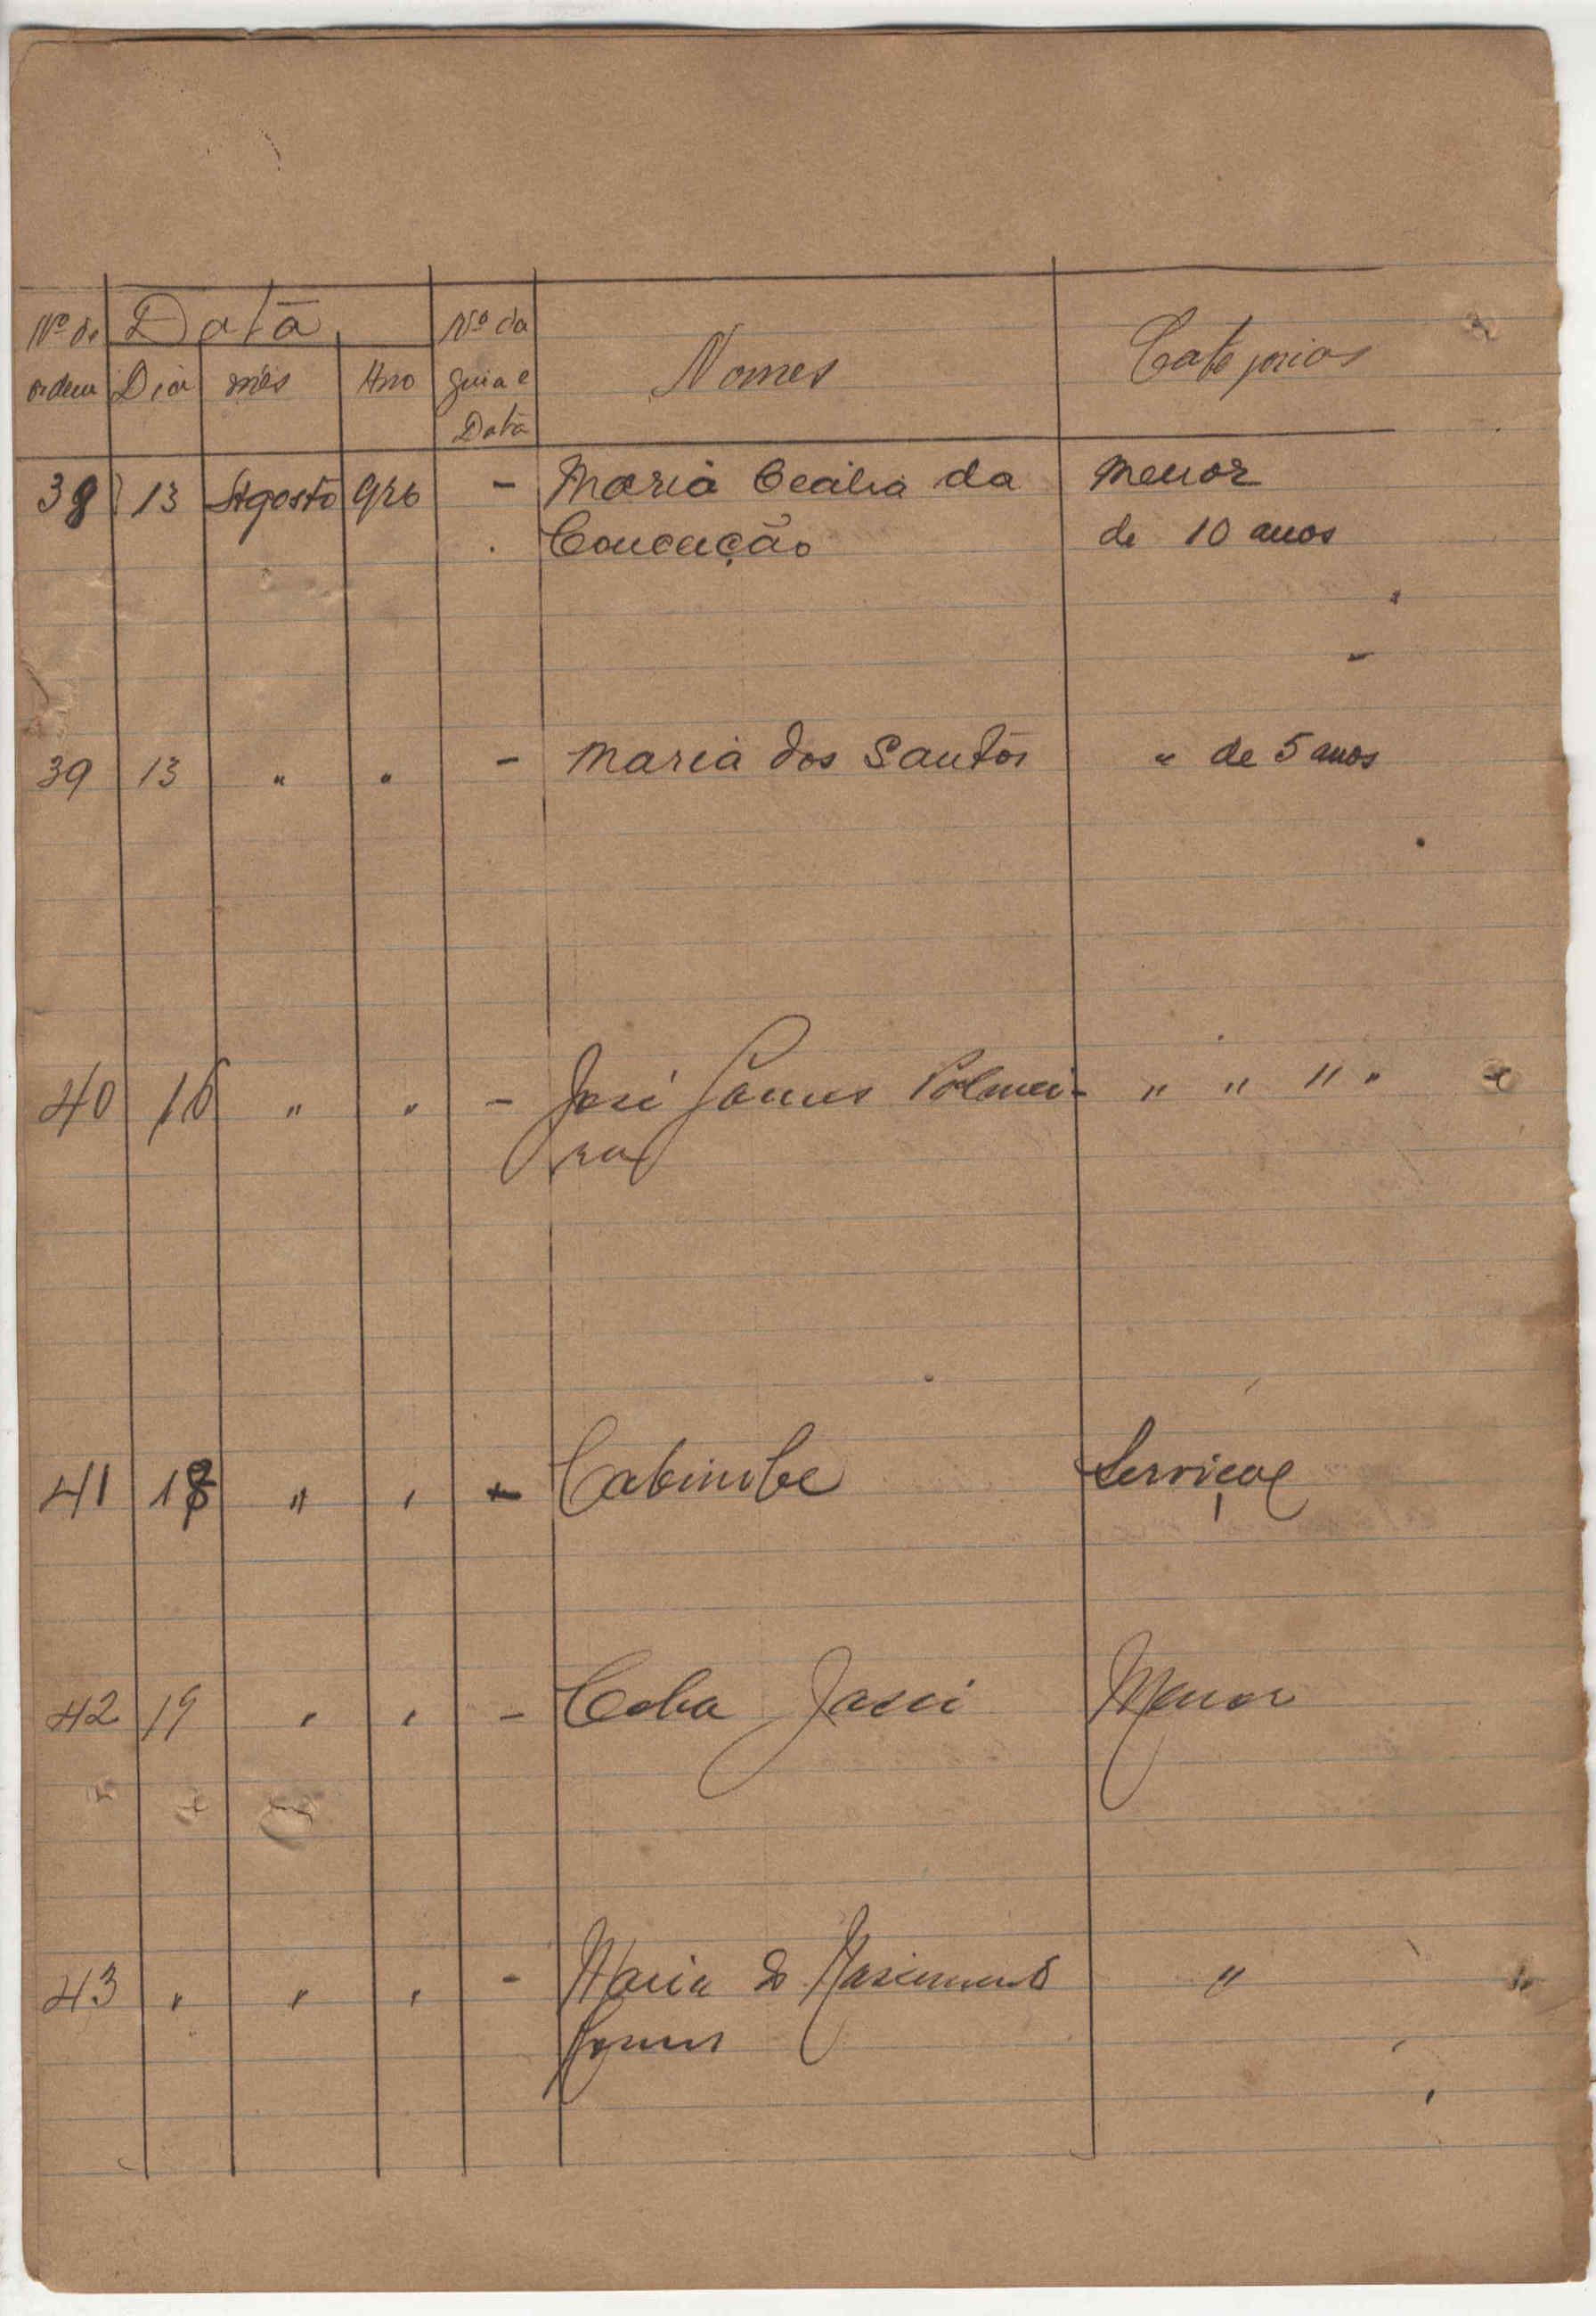 Nº de Data Nº da Nomes Categorias
ordem Dia mês Ano guia e
Data
38 13 Agosto 926 - Maria Cecilia da menor
Conceição de 10 anos
39 13 " " - Maria dos Santos " de 5 anos
40 16 " " - José Gomes Palmei- " " " "
ra
41 18 " " - Serviçal
42 19 " " - Menor
43 " " " - Maria do Nascimento "
Gomes